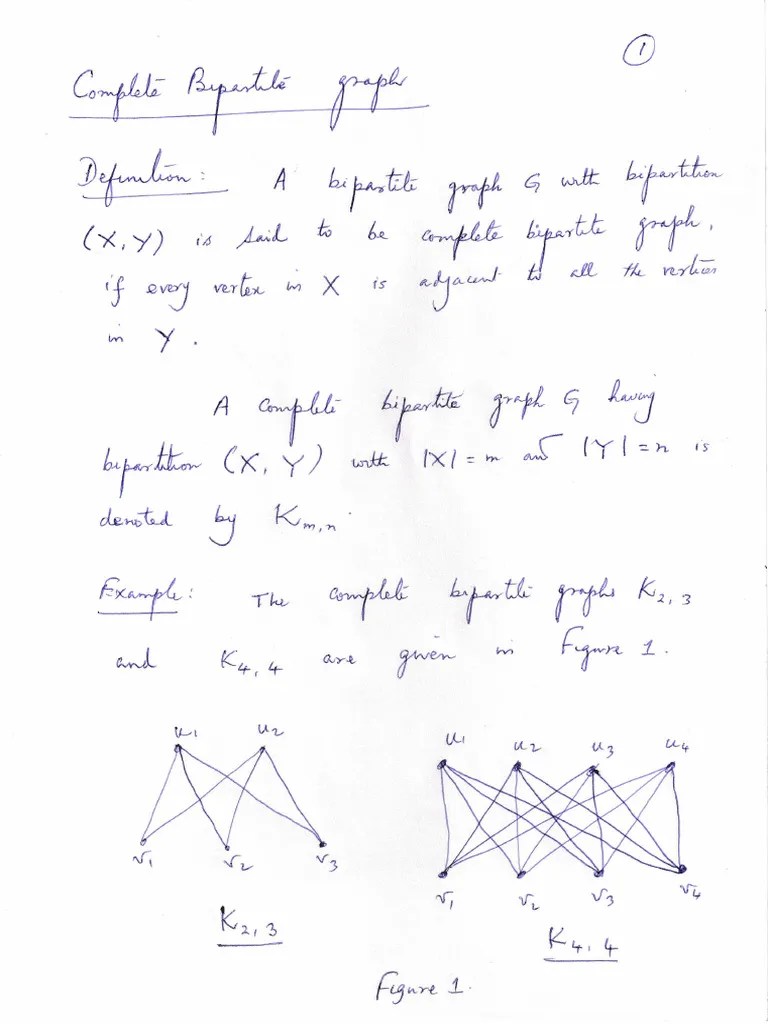 1
Complete Bipartite graph
Definition: A bipartite graph G with bipartition
(X, Y) is said to be complete bipartite graph,
if every vertex in X is adjacent to all the vertices
in Y.
A complete bipartite graph G having
bipartition (X, Y) with |X| = m and |Y| = n is
denoted by K_{m,n}.
Example: The complete bipartite graphs K_{2,3}
and K_{4,4} are given in Figure 1.
u1 u2 u1 u2 u3 u4
v1 v2 v3 v1 v2 v3 v4
K_{2,3} K_{4,4}
Figure 1.